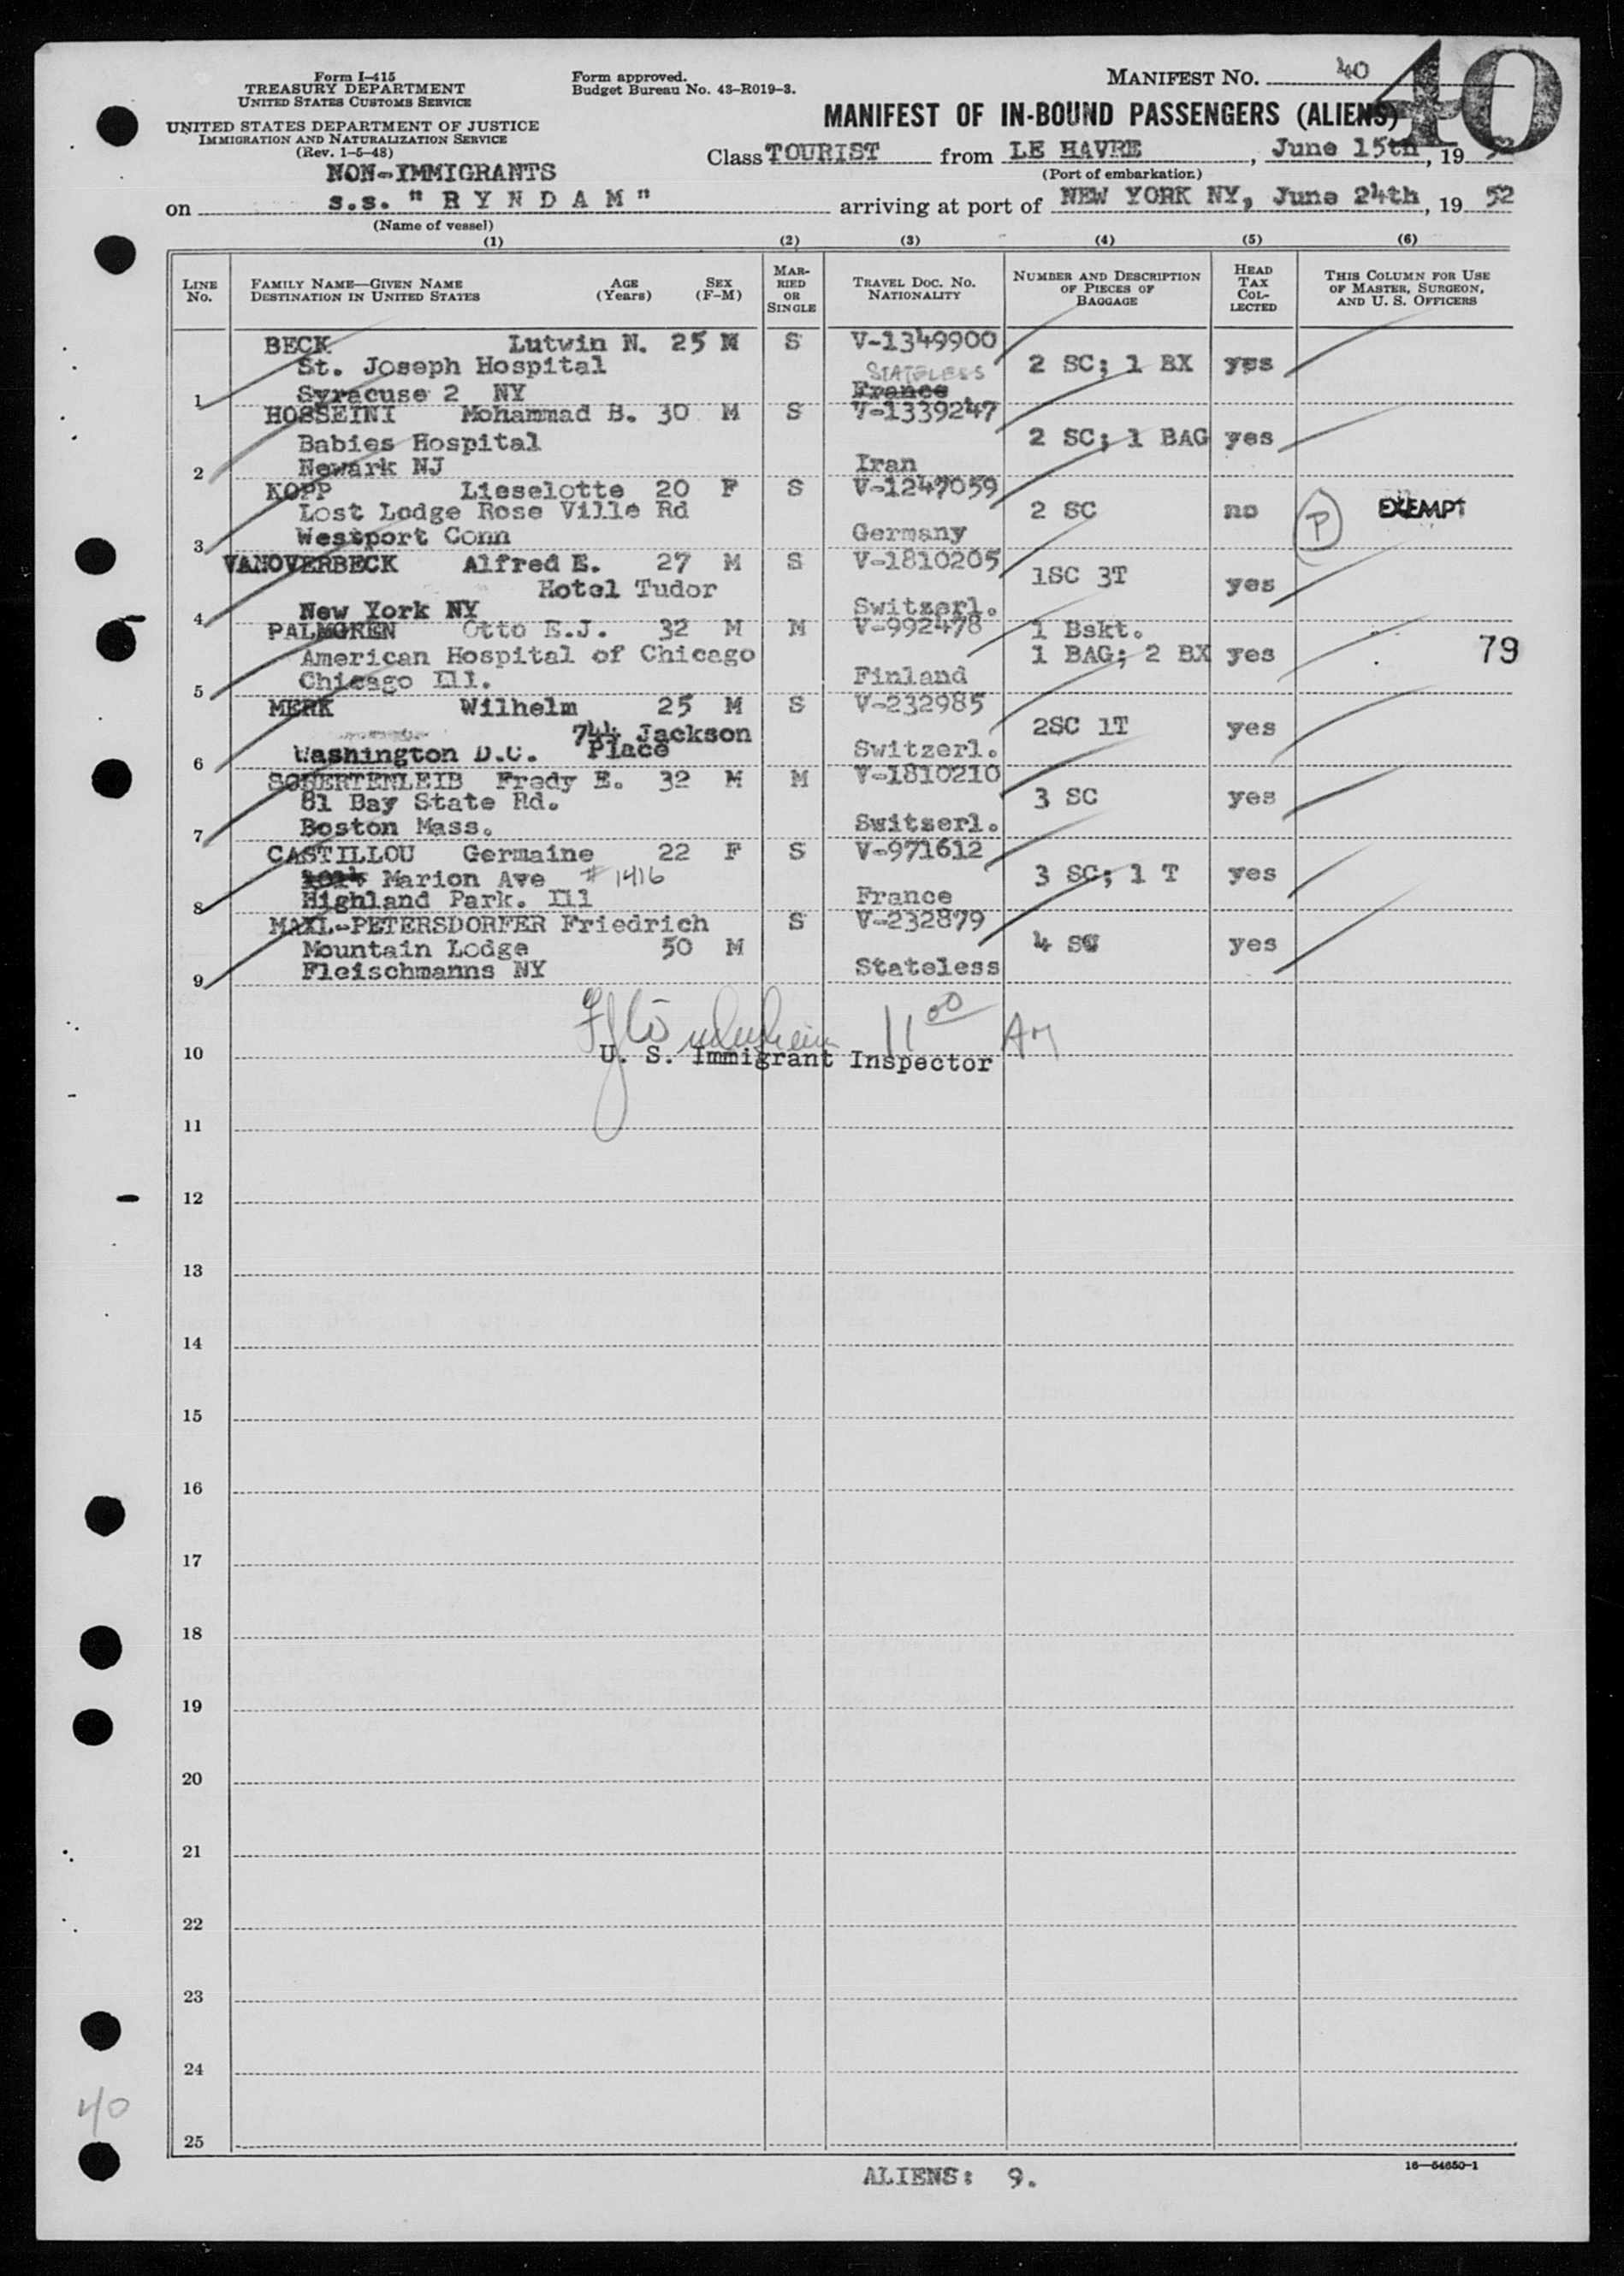 Form I-415
TREASURY DEPARTMENT
UNITED STATES CUSTOMS SERVICE
UNITED STATES DEPARTMENT OF JUSTICE
IMMIGRATION AND NATURALIZATION SERVICE
(Rev. 1-5-48)
NON-IMMIGRANTS
Form approved.
Budget Bureau No. 43-R019-3.
MANIFEST NO. 40
40
MANIFEST OF IN-BOUND PASSENGERS (ALIENS)
Class TOURIST from LE HAVRE, June 15th, 19 52
(Port of embarkation)
on s.s. "RYNDAM" arriving at port of NEW YORK NY, June 24th, 19 52
(Name of vessel)
(1) (2) (3) (4) (5) (6)
LINE No. FAMILY NAME—GIVEN NAME DESTINATION IN UNITED STATES AGE (Years) SEX (F-M) MARRIED OR SINGLE TRAVEL DOC. NO. NATIONALITY NUMBER AND DESCRIPTION OF PIECES OF BAGGAGE HEAD TAX COLLECTED THIS COLUMN FOR USE OF MASTER, SURGEON, AND U. S. OFFICERS
BECK Lutwin N. 25 M S V-1349900
St. Joseph Hospital STATELESS 2 SC; 1 BX yes
1 Syracuse 2 NY France
HOSSEINI Mohammad B. 30 M S V-1339247
Babies Hospital 2 SC; 1 BAG yes
2 Newark NJ Iran
KOPP Lieselotte 20 F S V-1247059
Lost Lodge Rose Ville Rd 2 SC no P EXEMPT
3 Westport Conn Germany
VANOVERBECK Alfred E. 27 M S V-1810205
Hotel Tudor 1SC 3T yes
4 New York NY Switzerl.
PALMGREN Otto E.J. 32 M M V-992478 1 Bskt.
American Hospital of Chicago 1 BAG; 2 BX yes 79
5 Chicago Ill. Finland
MERK Wilhelm 25 M S V-232985
744 Jackson 2SC 1T yes
6 Washington D.C. Place Switzerl.
SCHERTENLEIB Fredy E. 32 M M V-1810210
81 Bay State Rd. 3 SC yes
7 Boston Mass. Switzerl.
CASTILLOU Germaine 22 F S V-971612
Marion Ave #1416 3 SC; 1 T yes
8 Highland Park. Ill France
MAXL-PETERSDORFER Friedrich S V-232879
Mountain Lodge 50 M 4 SC yes
9 Fleischmanns NY Stateless
11 00 AM
10 U. S. Immigrant Inspector
11
12
13
14
15
16
17
18
19
20
21
22
23
24
40
25
ALIENS: 9.
16—54650-1